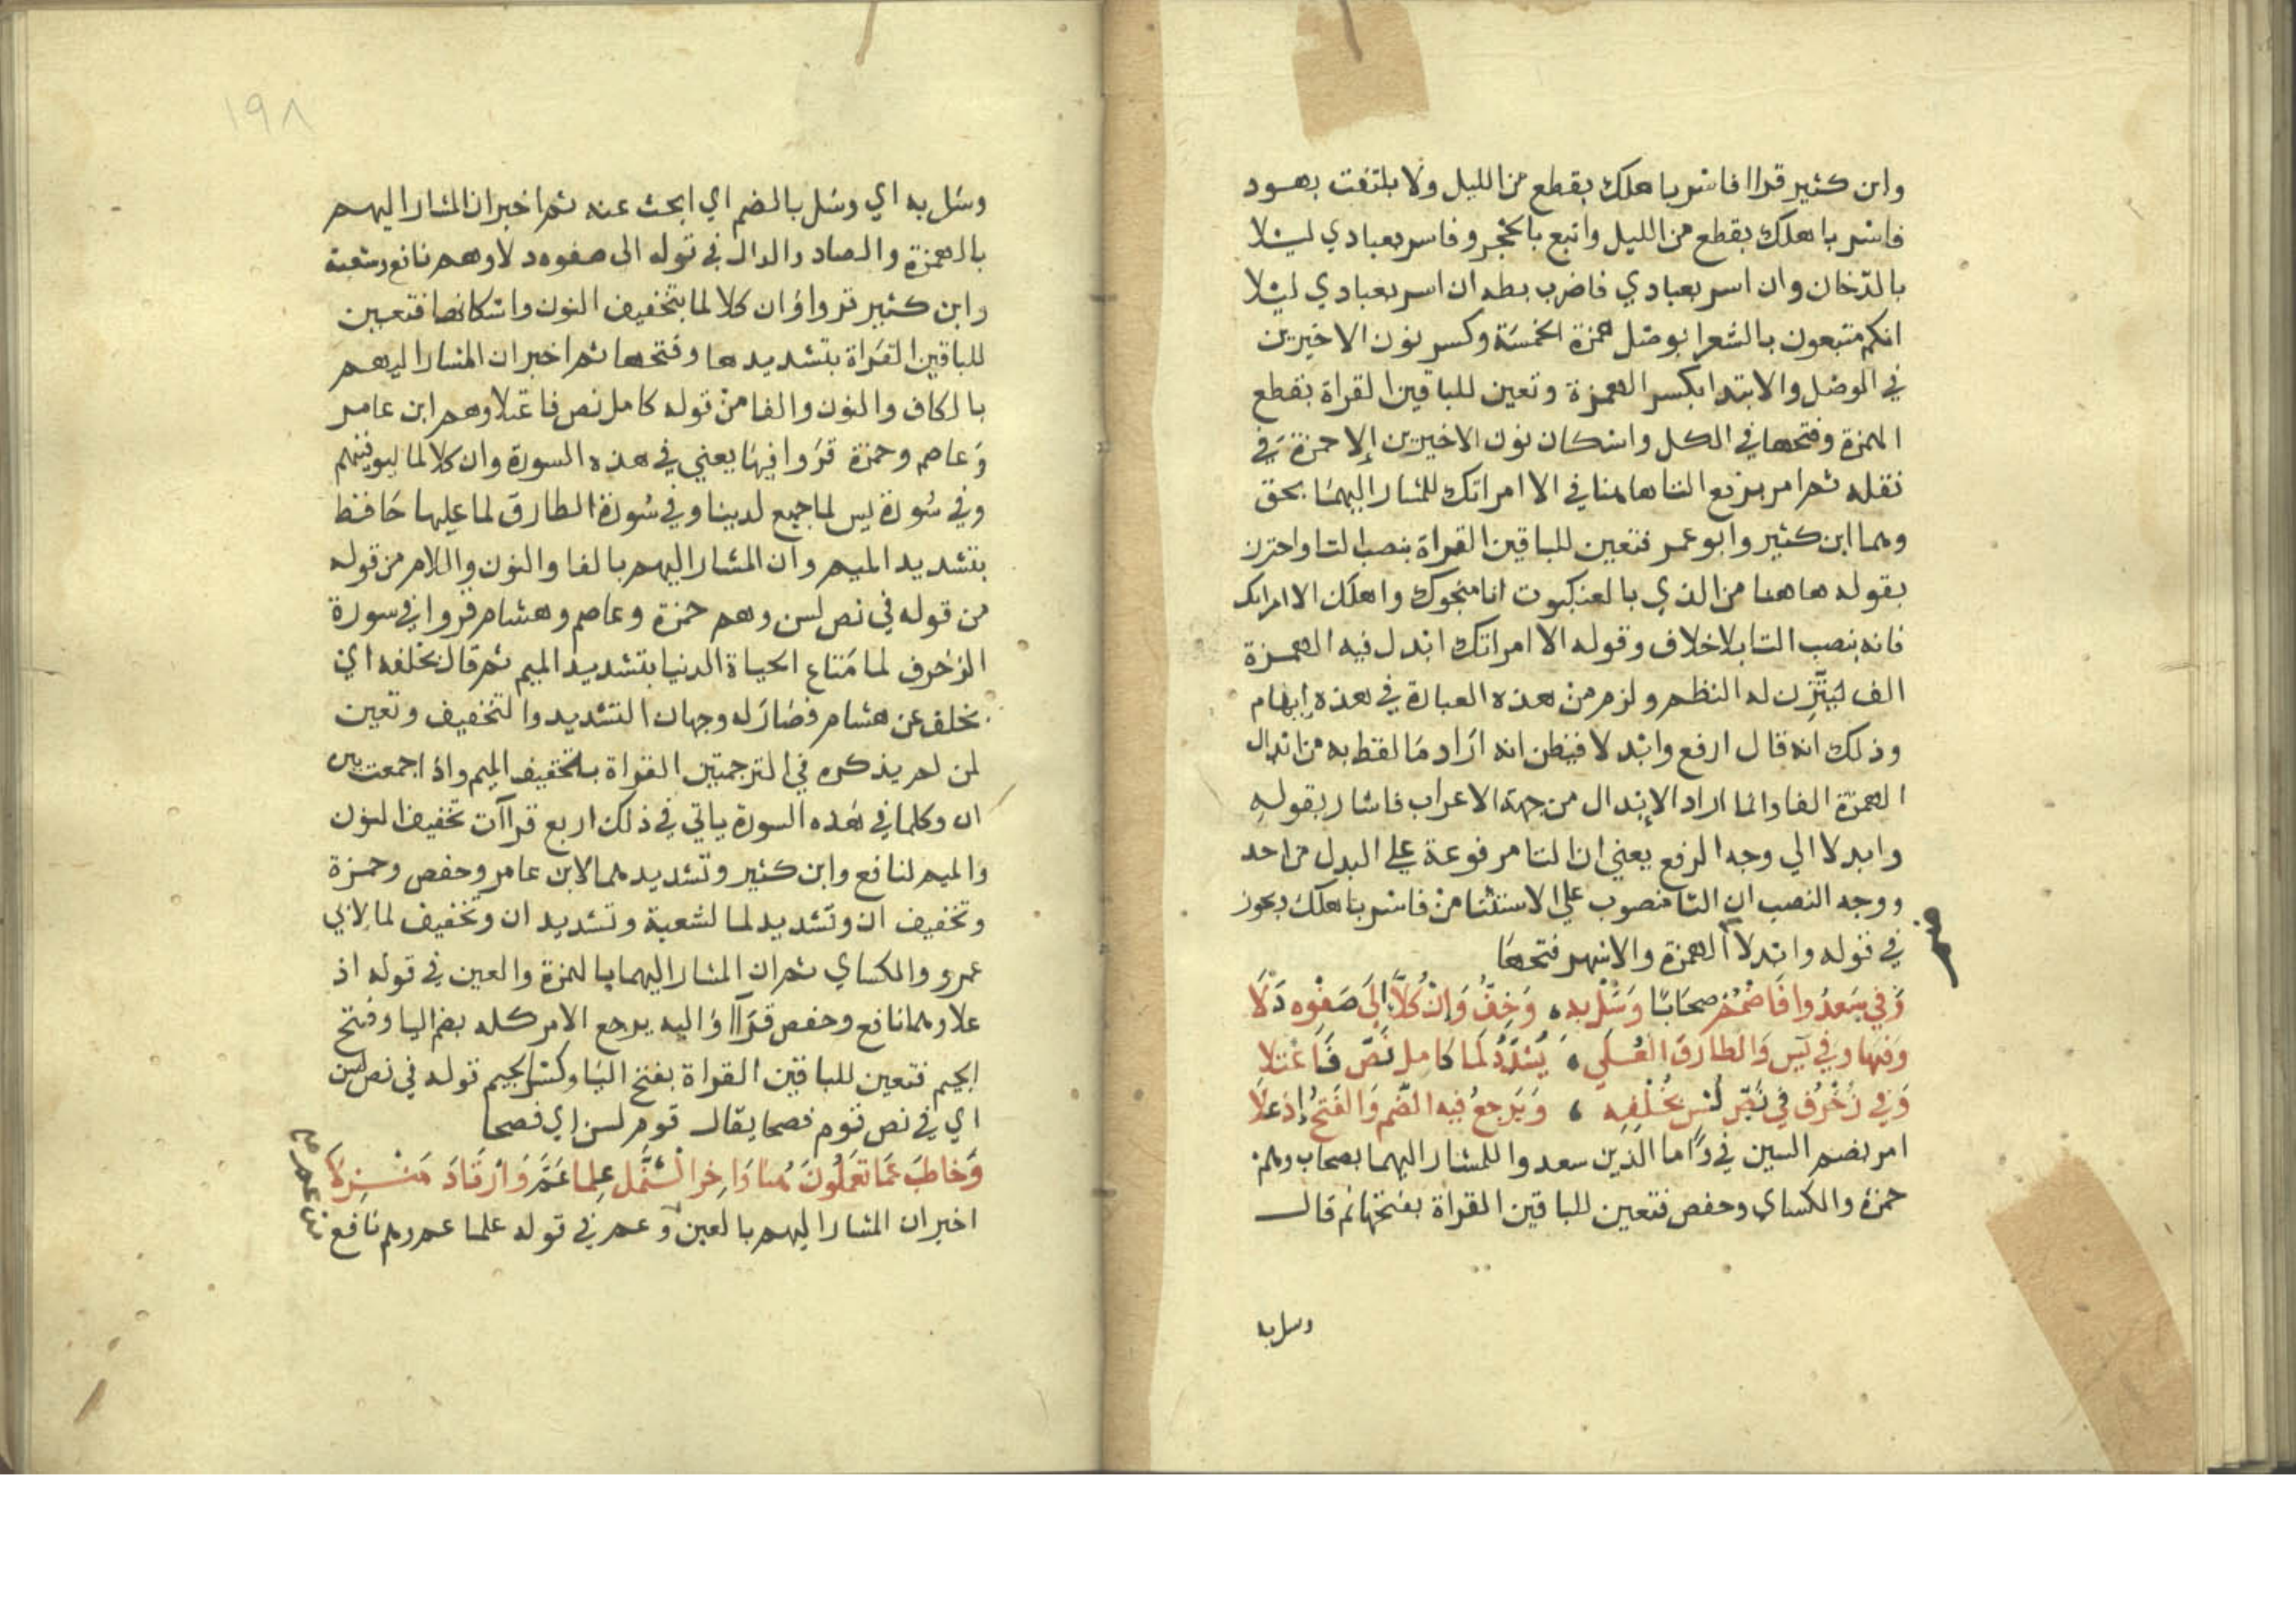 وابن كثير قراا فاسر باهلك بقطع من الليل ولا يلتفت بهود
فاسر باهلك بقطع من الليل واتبع بالحجر وفاسر بعبادي ليلا
بالدخان وان اسر بعبادي فاضرب بطه ان اسر بعبادي ليلا
انكم متبعون بالشعرا بوصل همزة الخمسة وكسر نون الاخيرتين
في الوصل والابتدا بكسر الهمزة وتعين للباقين القراة بقطع
الهمزة وفتحها في الكل واسكان نون الاخيرتين إلا حمزة في
نقله ثم امر برفع التا هاهنا في الا امراتك للمشار اليهما بحق
وهما ابن كثير وابو عمر فتعين للباقين القراة بنصب التا واحترز
بقوله هاهنا من الذي بالعنكبوت انا منجوك واهلك الا امراتك
فانه بنصب التا بلا خلاف وقوله الا امراتك ابدل فيه الهمزة
الف ليتزن له النظم ولزم من هذه العبارة في هذه إبهام
وذلك انه قال ارفع وابدلا فيظن انه اراد ما لفظ به من ابدال
الهمزة الفا وانما اراد الابدال من جهة الاعراب فاشار بقوله
وابدلا الي وجه الرفع يعني ان التا مرفوعة علي البدل من احد
ووجه النصب ان التا منصوب علي الاستثنا من فاسر باهلك ويجوز
في قوله وابدلا الهمزة والاشهر فتحها
وَفي سَعدُوا فَاضْمُمْ صحَابًا وَسَلْ به وَخِفُّ وَإنْ كُلاًّ إلَى صَفْوِه دَلَا
وَفيها وَفي يسَ وَالطارق العُلَى يُشَدِّدُ لَمَا كَامل نَصَّ فَاعْتلا
وَفي زُخْرُف في نَصِّ لُسْنٍ بخُلْفِه وَيَرجعُ فيه الضَّم وَالفَتحُ إذ عَلَا
امر بضم السين في واما الذين سعدوا للمشار اليهما بصحاب وهم
حمزة والكساي وحفص فتعين للباقين القراة بفتحها ثم قال
وسل به
١٩٨
وسل به اي وسل بالضم اي ابحث عنه ثم اخبر ان المشار اليهم
بالهمزة والصاد والدال في قوله الى صفوه دلا وهم نافع وشعبة
وابن كثير قرواؤ ان كلا لما بتخفيف النون واسكانها فتعين
للباقين القراة بتشديدها وفتحها ثم اخبر ان المشار اليهم
بالكاف والنون والفا من قوله كامل نص فاعتلا وهم ابن عامر
وعاصم وحمزة قروا فيها يعني في هذه السورة وان كلا لما ليوفينهم
وفي سورة يس لما جميع لدينا وفي سورة الطارق لما عليها حافظ
بتشديد الميم وان المشار اليهم بالفا والنون واللام من قوله
من قوله في نص لسن وهم حمزة وعاصم وهشام قروا في سورة
الزخرف لما متاع الحياة الدنيا بتشديد الميم ثم قال بخلفه اي
بخلف عن هشام فصار له وجهان التشديد والتخفيف وتعين
لمن لم يذكره في الترجمتين القراة بتخفيف الميم واذا جمعت بين
ان وكلما في هذه السورة ياتي في ذلك اربع قراآت تخفيف النون
والميم لنافع وابن كثير وتشديدهما لابن عامر وحفص وحمزة
وتخفيف ان وتشديد لما لشعبة وتشديد ان وتخفيف لما لابي
عمرو والكساي ثم ان المشار اليهما بالهمزة والعين في قوله اذ
علا وهما نافع وحفص قراآ واليه يرجع الامر كله بضم اليا وفتح
الجيم فتعين للباقين القراة بفتح اليا وكسر الجيم قوله في نص لسن
اي في نص قوم فصحا يقال قوم لسن اي فصحا
وَخاطبَ عَمّا تعمَلُونَ هُنا وَاخر النَّمْل عِلما عَمَّ وَارْتَادَ مَنْزِلاَ
اخبر ان المشار اليهم بالعين وعم في قوله علما عم وهم نافع